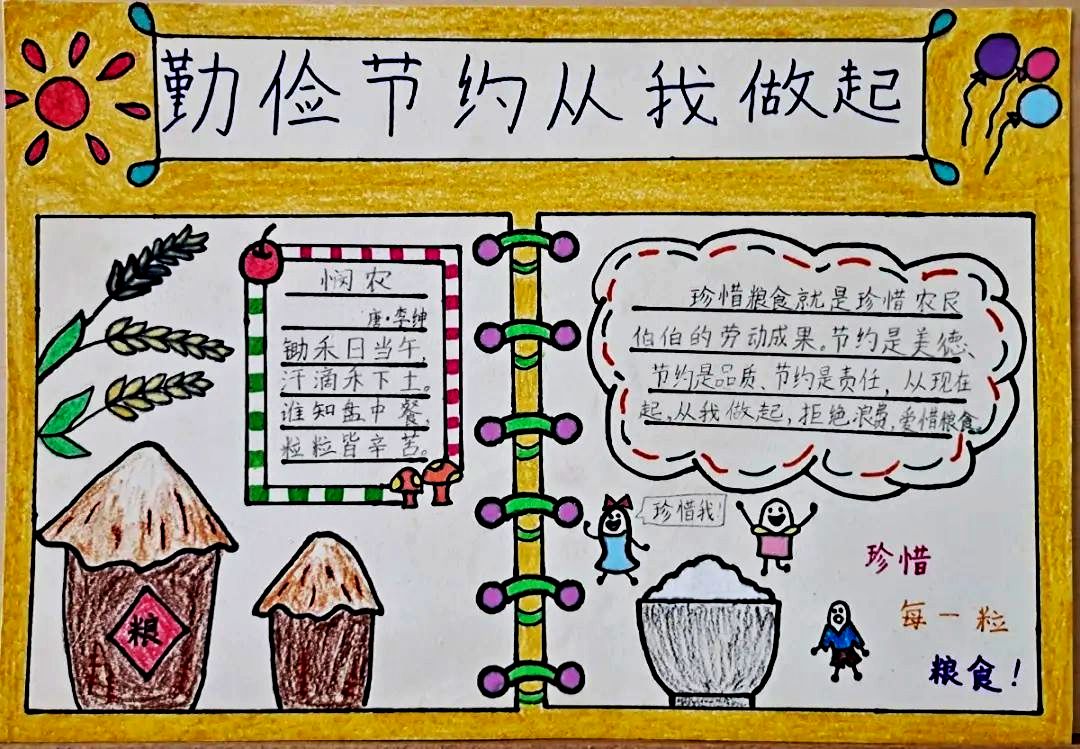 勤俭节约从我做起
悯农
唐·李绅
锄禾日当午,
汗滴禾下土。
谁知盘中餐,
粒粒皆辛苦。
粮
珍惜粮食就是珍惜农民
伯伯的劳动成果。节约是美德、
节约是品质、节约是责任,从现在
起,从我做起,拒绝浪费,爱惜粮食。
珍惜我!
珍惜
每一粒
粮食!